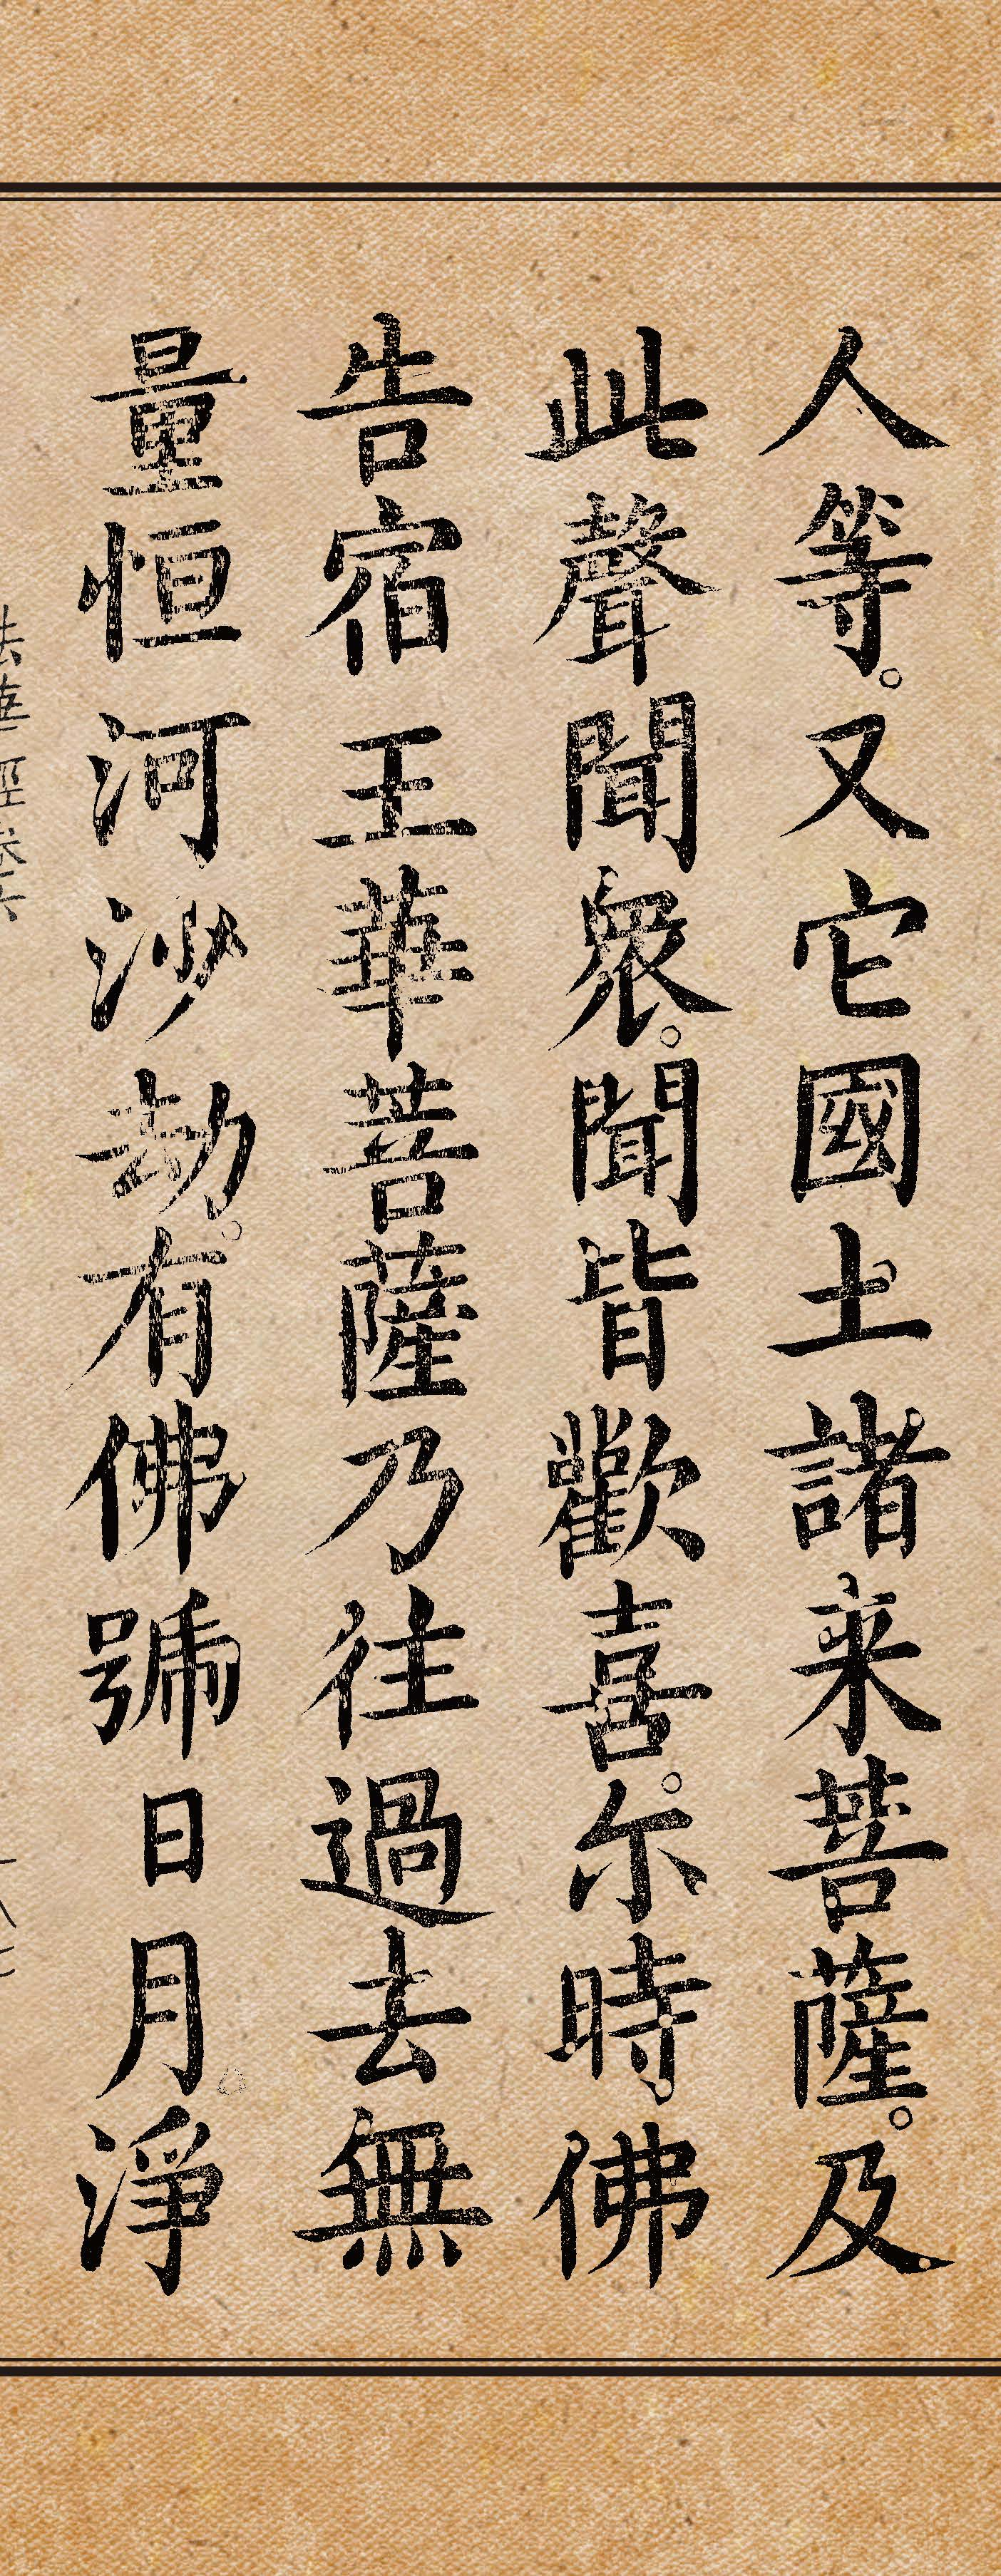 人等。又它國土諸来菩薩。及
此聲聞衆。聞皆歡喜。尓時佛
告宿王華菩薩乃往過去無
量恒河沙劫。有佛號日月淨